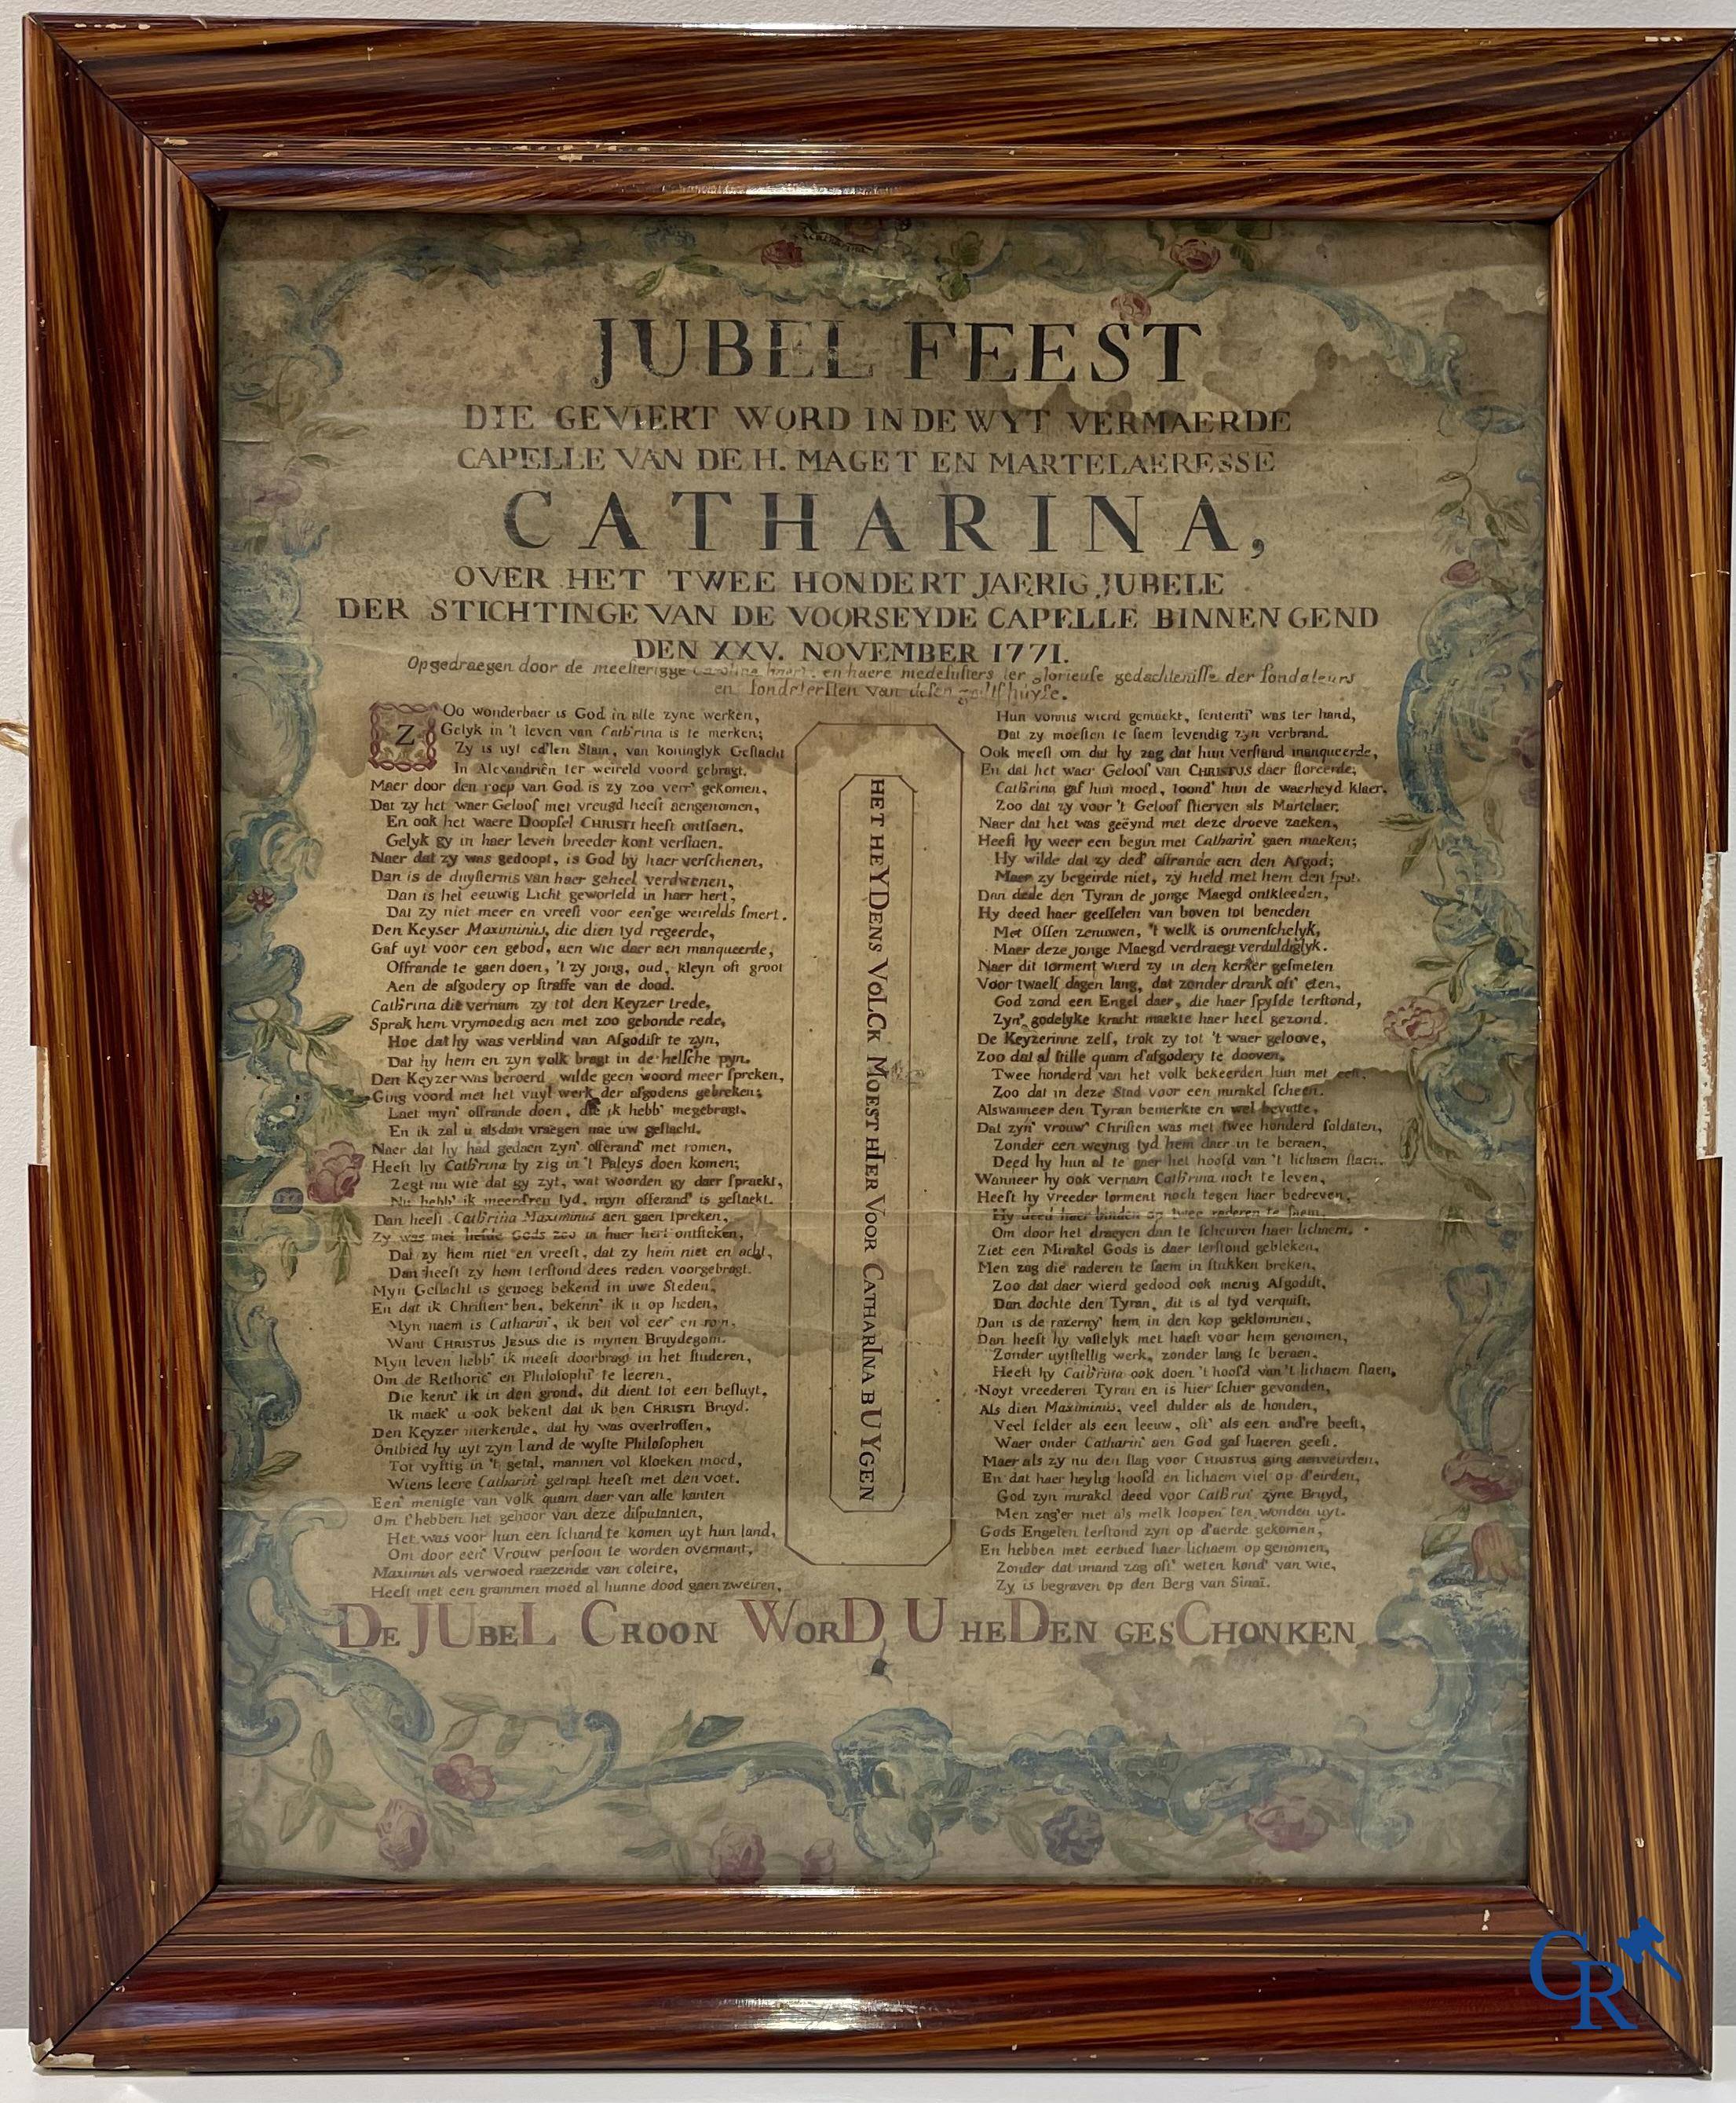 JUBEL FEEST
DIE GEVIERT WORD IN DE WYT VERMAERDE
CAPELLE VAN DE H. MAGET EN MARTELAERESSE
CATHARINA,
OVER HET TWEE HONDERT JAERIG JUBELE
DER STICHTINGE VAN DE VOORSEYDE CAPELLE BINNEN GEND
DEN XXV. NOVEMBER 1771.
Opgedraegen door de meesterigge en haere medesusters ter glorieuse gedachtenisse der fondateurs
en van desen
ZOo wonderbaer is God in alle zyne werken,
Gelyk in 't leven van Cath'rina is te merken;
Zy is uyt ed'len Stam, van koninglyk Geslacht
In Alexandriën ter weireld voord gebragt.
Maer door den roep van God is zy zoo verr' gekomen,
Dat zy het waer Geloof met vreugd heeft aengenomen,
En ook het waere Doopsel CHRISTI heeft ontfaen,
Gelyk gy in haer leven breeder kont verstaen.
Naer dat zy was gedoopt, is God by haer verschenen,
Dan is de duysternis van haer geheel verdwenen,
Dan is het eeuwig Licht geworteld in haer hert,
Dat zy niet meer en vreest voor een'ge weirelds smert.
Den Keyser Maximinius, die dien tyd regeerde,
Gaf uyt voor een gebod, aen wie daer aen manqueerde,
Offrande te gaen doen, 't zy jong, oud, kleyn oft groot
Aen de afgodery op straffe van de dood.
Cath'rina die vernam zy tot den Keyzer trede,
Sprak hem vrymoedig aen met zoo gebonde rede,
Hoe dat hy was verblind van Afgodist te zyn,
Dat hy hem en zyn volk bragt in de helsche pyn.
Den Keyzer was beroerd wilde geen woord meer spreken,
Ging voord met het vuyl werk der afgodens gebreken;
Laet myn' offrande doen, die ik hebb' megebragt,
En ik zal u alsdan vraegen nae uw geslacht.
Naer dat hy had gedaen zyn' offerand' met romen,
Heeft hy Cath'rina by zig in 't Paleys doen komen;
Zegt nu wie dat gy zyt, wat woorden gy daer spraekt,
Nu hebb' ik meerdren tyd, myn offerand' is gestaekt.
Dan heeft Cath'rina Maximinus aen gaen spreken,
Zy was met liefde Gods zoo in haer hert ontsteken,
Dat zy hem niet en vreest, dat zy hem niet en acht,
Dan heeft zy hem terstond dees reden voorgebragt.
Myn Geslacht is genoeg bekend in uwe Steden,
En dat ik Christen ben, bekenn' ik u op heden,
Myn naem is Catharin', ik ben vol eer' en
Want CHRISTUS JESUS die is mynen Bruydegom.
Myn leven hebb' ik meest doorbragt in het studeren,
Om de Rethoric' en Philosophi' te leeren,
Die kenn' ik in den grond, dit dient tot een besluyt,
Ik maek' u ook bekent dat ik ben CHRISTI Bruyd.
Den Keyzer merkende, dat hy was overtroffen,
Ontbied hy uyt zyn land de wyste Philosophen
Tot vyftig in 't getal, mannen vol kloeken moed,
Wiens leere Catharin' getrapt heeft met den voet.
Een' menigte van volk quam daer van alle kanten
Om t'hebben het gehoor van deze disputanten,
Het was voor hun een schand te komen uyt hun land,
Om door een' Vrouw persoon te worden overmant,
Maximin als verwoed raezende van coleire,
Heeft met een grammen moed al hunne dood gaen zweiren,
HET HEYDENS VOLCK MOEST HIER VOOR CATHARINA BUYGEN
Hun vonnis wierd gemaekt, sententi' was ter hand,
Dat zy moesten te saem levendig zyn verbrand.
Ook meest om dat hy zag dat hun verstand manqueerde,
En dat het waer Geloof van CHRISTUS daer floreerde,
Cath'rina gaf hun moed, toond' hun de waerheyd klaer,
Zoo dat zy voor 't Geloof stierven als Martelaer.
Naer dat het was geëynd met deze droeve zaeken,
Heeft hy weer een begin met Catharin' gaen maeken;
Hy wilde dat zy ded' offrande aen den Afgod;
Maer zy begeirde niet, zy hield met hem den spot.
Dan dede den Tyran de jonge Maegd ontkleeden,
Hy deed haer geesselen van boven tot beneden
Met Ossen zenuwen, 't welk is onmenschelyk,
Maer deze jonge Maegd verdraegt verduldiglyk.
Naer dit torment wierd zy in den kerker gesmeten
Voor twaelf dagen lang, dat zonder drank oft' eten,
God zond een Engel daer, die haer spysde terstond,
Zyn' godelyke kracht maekte haer heel gezond.
De Keyzerinne zelf, trok zy tot 't waer geloove,
Zoo dat al stille quam d'afgodery te dooven,
Twee honderd van het volk bekeerden hun met
Zoo dat in deze Stad voor een mirakel scheen.
Alswanneer den Tyran bemerkte en wel bevatte,
Dat zyn' vrouw' Christen was met twee honderd soldaten,
Zonder een weynig tyd hem daer in te beraen,
Deed hy hun al te gaer het hoofd van 't lichaem slaen.
Wanneer hy ook vernam Cath'rina noch te leven,
Heeft hy vreeder torment noch tegen haer bedreven,
Hy deed haer binden op twee raderen te saem,
Om door het draeyen dan te scheuren haer lichaem.
Ziet een Mirakel Gods is daer terstond gebleken,
Men zag die raderen te saem in stukken breken,
Zoo dat daer wierd gedood ook menig Afgodist,
Dan dochte den Tyran, dit is al tyd verquist.
Dan is de razerny' hem in den kop geklommen,
Dan heeft hy vastelyk met haest voor hem genomen,
Zonder uytstellig werk, zonder lang te beraen,
Heeft hy Cath'rina ook doen 't hoofd van 't lichaem slaen,
Noyt vreederen Tyran en is hier schier gevonden,
Als dien Maximinus, veel dulder als de honden,
Veel felder als een leeuw, oft' als een and're beest,
Waer onder Catharin' aen God gaf haeren geest.
Maer als zy nu den slag voor CHRISTUS ging aenveirden,
En dat haer heylig hoofd en lichaem viel op d'eirden,
God zyn mirakel deed voor Cath'rin' zyne Bruyd,
Men zag'er niet als melk loopen ten wonden uyt.
Gods Engelen terstond zyn op d'aerde gekomen,
En hebben met eerbied haer lichaem op genomen,
Zonder dat imand zag oft' weten kond' van wie,
Zy is begraven op den Berg van Sinaï.
DE JUBEL CROON WORD U HEDEN GESCHONKEN
CR